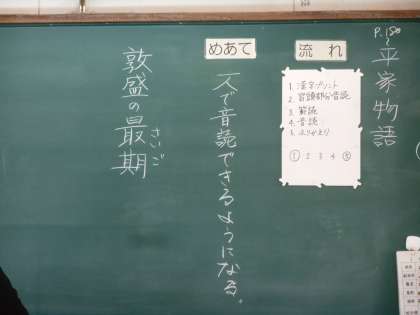 P.150〜
平家物語
流れ
1. 漢字プリント
2. 冒頭部分音読
3. 範読
4. 音読
5. ふりかえり
① 2 3 4 ⑤
めあて
一人で音読できるようになる。
敦盛の最期
さいご